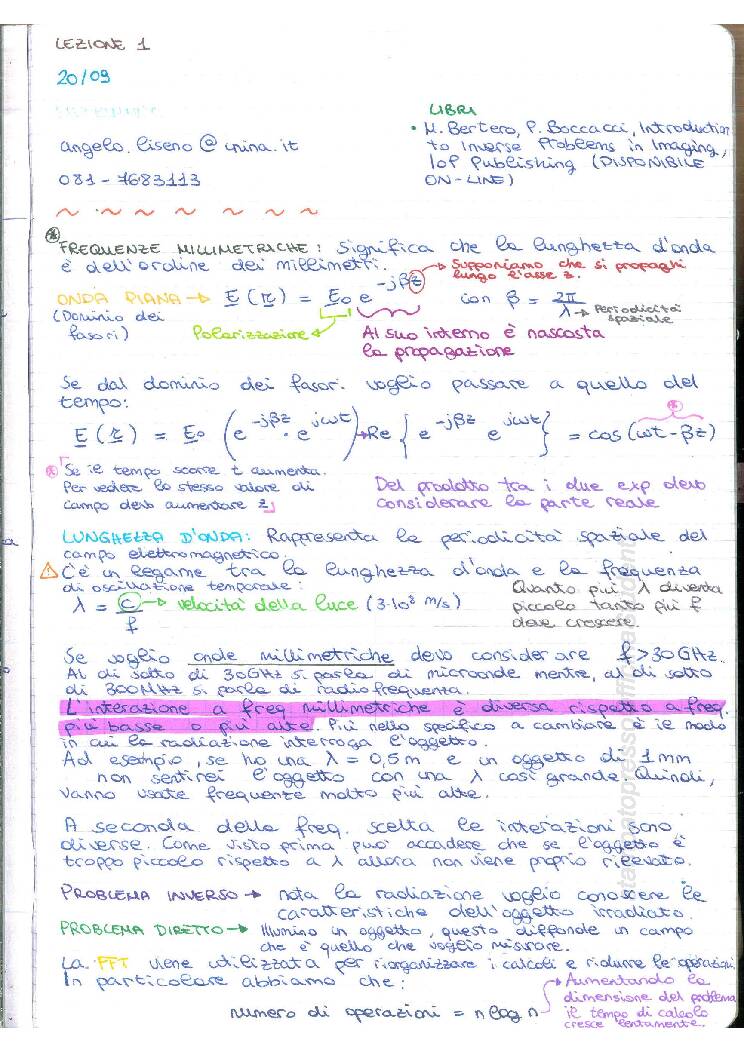 LEZIONE 1
20/09
LIBRI
• M. Bertero, P. Boccacci, Introduction
to Inverse Problems in Imaging,
IoP Publishing (DISPONIBILE
ON-LINE)
angelo.liseno@unina.it
081-7683113
FREQUENZE MILLIMETRICHE: Significa che la lunghezza d'onda
è dell'ordine dei millimetri.
Supponiamo che si propaghi
lungo l'asse z.
ONDA PIANA → E(r) = E₀ e^{-jβz} con β = 2π/λ → Periodicità
spaziale
(Dominio dei
fasori)
Polarizzazione
Al suo interno è nascosta
la propagazione
Se dal dominio dei fasori voglio passare a quello del
tempo:
E(r) = E₀ (e^{-jβz} · e^{jωt}) → Re {e^{-jβz} e^{jωt}} = cos(ωt - βz)
Se il tempo scorre t aumenta.
Per vedere lo stesso valore di
campo devo aumentare z
Del prodotto tra i due exp devo
considerare la parte reale
LUNGHEZZA D'ONDA: Rappresenta la periodicità spaziale del
campo elettromagnetico.
⚠ C'è un legame tra la lunghezza d'onda e la frequenza
di oscillazione temporale:
λ = c/f → velocità della luce (3·10⁸ m/s)
Quanto più λ diventa
piccolo tanto più f
deve crescere
Se voglio onde millimetriche devo considerare f>30GHz.
Al di sotto di 30GHz si parla di microonde mentre, al di sotto
di 300MHz si parla di radiofrequenza.
L'interazione a freq millimetriche è diversa rispetto a freq.
più basse o più alte. Più nello specifico a cambiare è il modo
in cui la radiazione interroga l'oggetto.
Ad esempio, se ho una λ = 0,5m e un oggetto di 1mm
non sentirei l'oggetto con una λ così grande. Quindi,
vanno usate frequenze molto più alte.
A seconda della freq. scelta le interazioni sono
diverse. Come visto prima può accadere che se l'oggetto è
troppo piccolo rispetto a λ allora non viene proprio rilevato.
PROBLEMA INVERSO → nota la radiazione voglio conoscere le
caratteristiche dell'oggetto irradiato.
PROBLEMA DIRETTO → Illumino un oggetto, questo diffonde un campo
che è quello che voglio misurare.
La FFT viene utilizzata per riorganizzare i calcoli e ridurre le operazioni
In particolare abbiamo che:
numero di operazioni = n log n
Aumentando la
dimensione del problema
il tempo di calcolo
cresce lentamente.